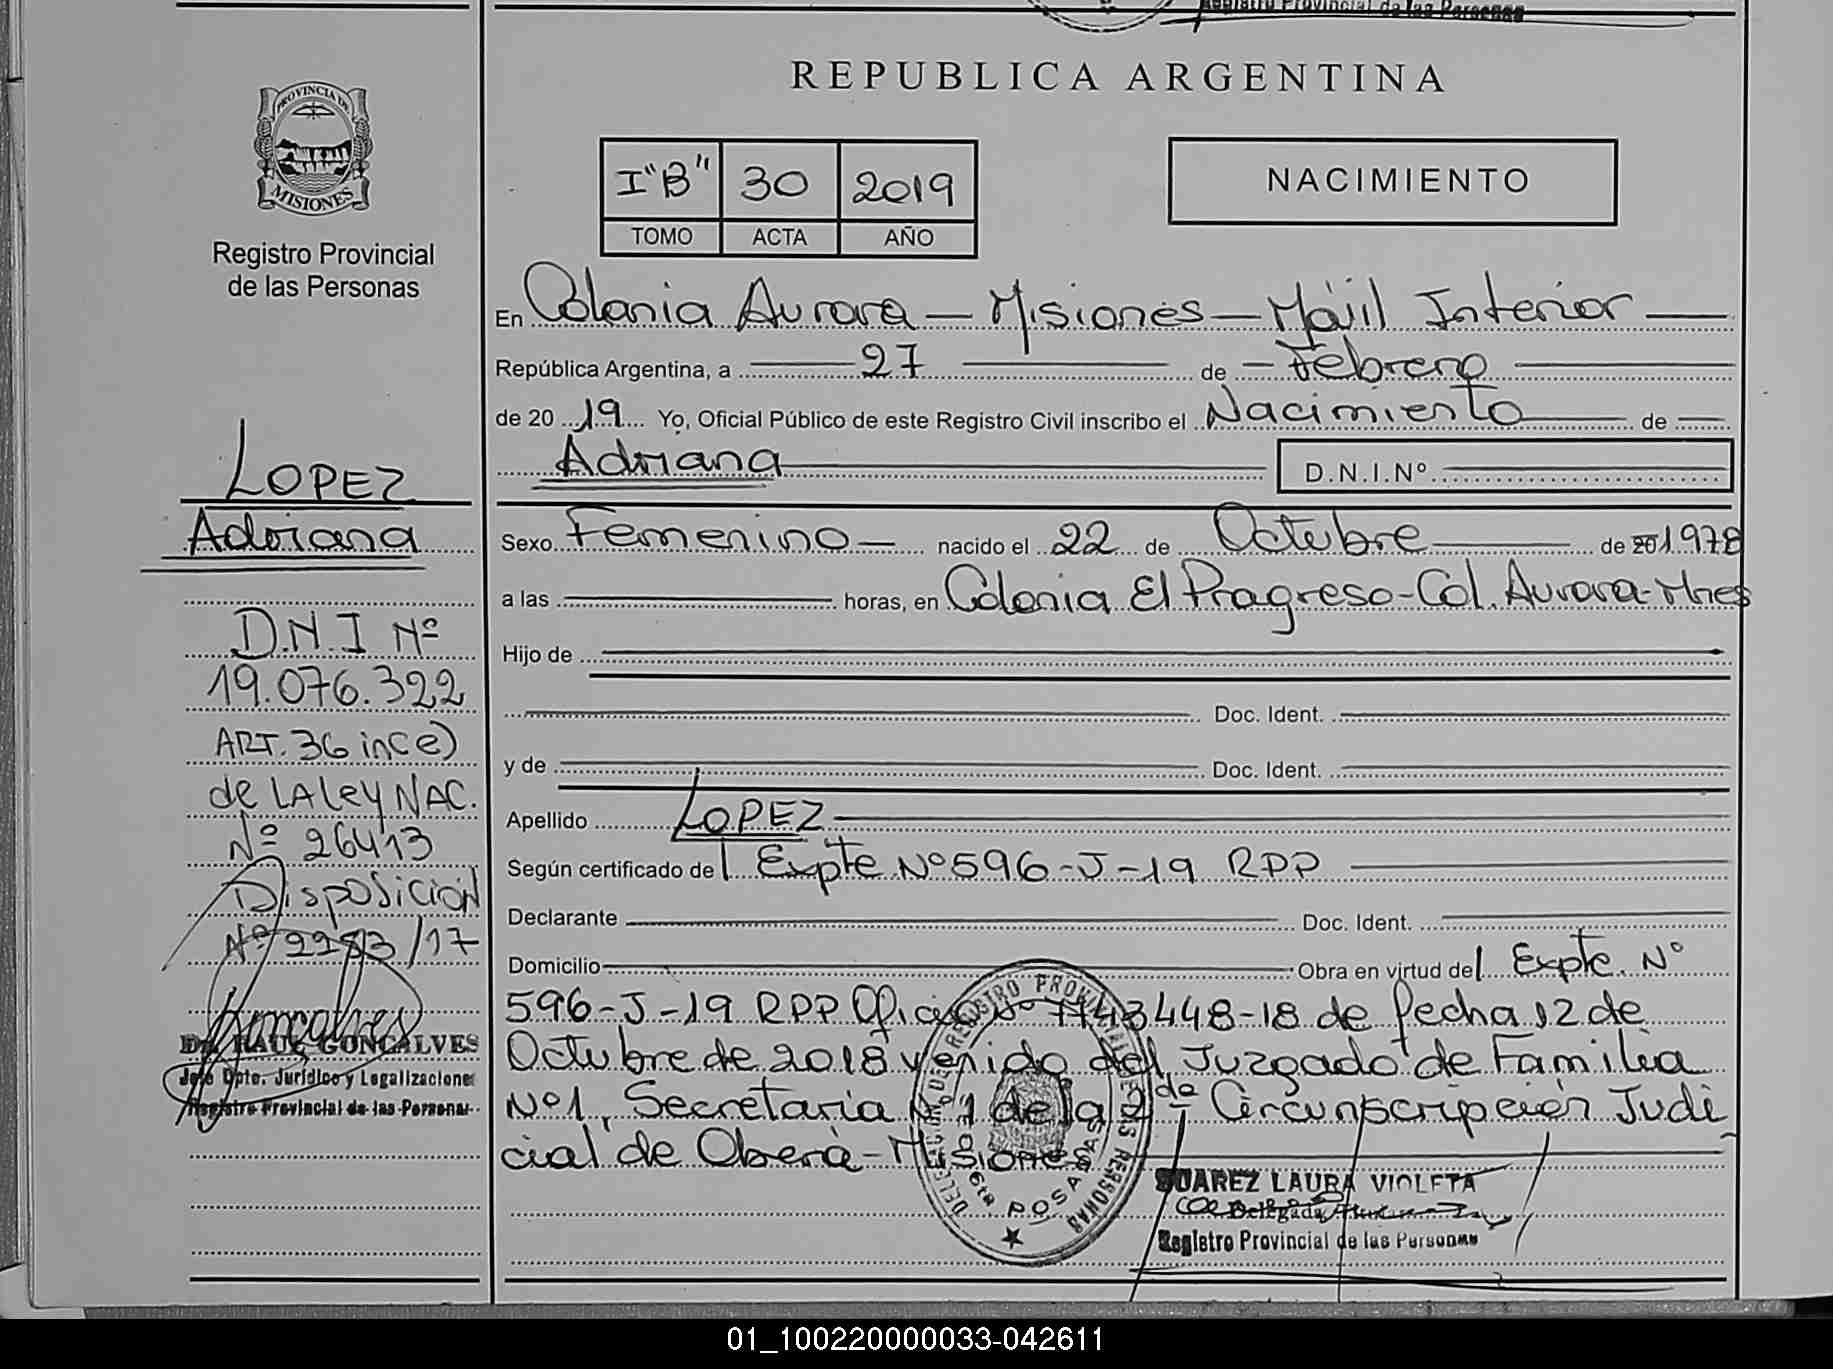 Registro Provincial de las Personas
PROVINCIA DE
MISIONES
Registro Provincial
de las Personas
LOPEZ
Adriana
D.N.I Nº
19.076.322
ART. 36 inc e)
de LA Ley NAC.
Nº 26413
Disposición
Nº 2283/17
Dr. RAUL GONCALVES
Jefe Dpto. Jurídico y Legalizaciones
Registro Provincial de las Personas
REPUBLICA ARGENTINA
I"B" 30 2019
TOMO ACTA AÑO
NACIMIENTO
En Colonia Aurora - Misiones - Móvil Interior
República Argentina, a 27 de Febrero
de 20 19 Yo, Oficial Público de este Registro Civil inscribo el Nacimiento de
Adriana D.N.I.Nº
Sexo Femenino nacido el 22 de Octubre de 20 1978
a las horas, en Colonia El Progreso - Col. Aurora - Mnes
Hijo de
Doc. Ident.
y de Doc. Ident.
Apellido LOPEZ
Según certificado del Expte Nº 596-J-19 RPP
Declarante Doc. Ident.
Domicilio Obra en virtud del Expte. Nº
596-J-19 RPP Oficio Nº 7743448-18 de fecha 12 de
Octubre de 2018 venido del Juzgado de Familia
Nº1, Secretaria Nº 1 de la 2da Circunscripción Judi
cial de Oberá - Misiones
DELEGACION DEL REGISTRO PROVINCIAL DE LAS PERSONAS
POSADAS
SUAREZ LAURA VIOLETA
Delegada
Registro Provincial de las Personas
01_100220000033-042611